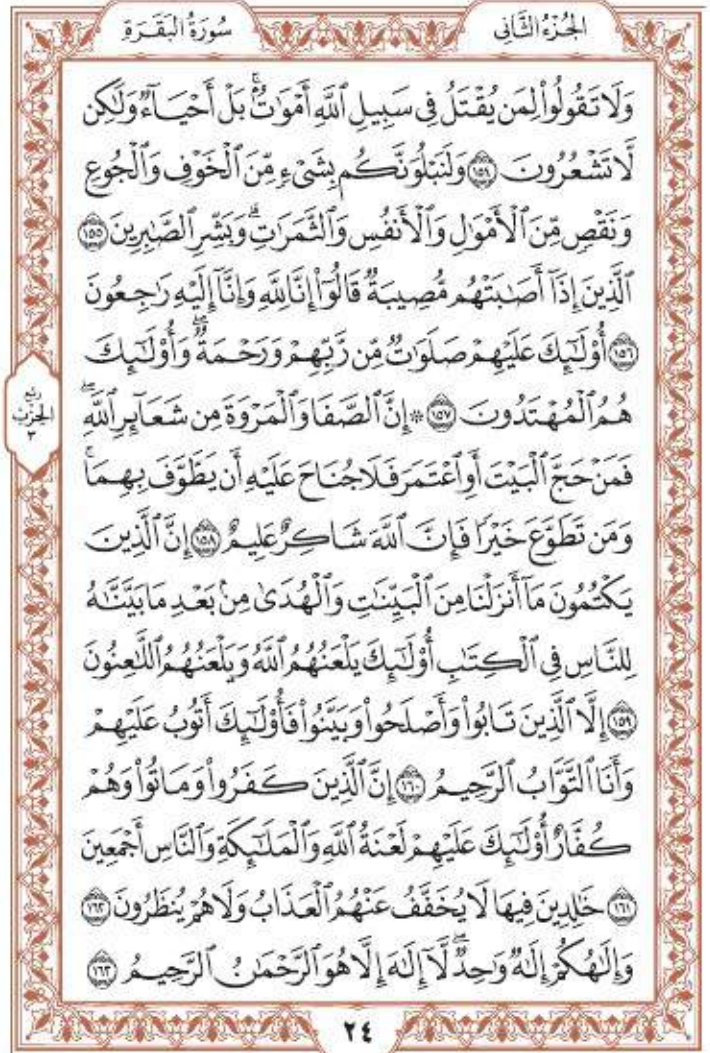 الجُزْءُ الثَّانِي
سُورَةُ البَقَرَةِ
وَلَا تَقُولُوا۟ لِمَن يُقْتَلُ فِى سَبِيلِ ٱللَّهِ أَمْوَٰتٌۢۚ بَلْ أَحْيَآءٌ وَلَٰكِن
لَّا تَشْعُرُونَ ١٥٤ وَلَنَبْلُوَنَّكُم بِشَىْءٍ مِّنَ ٱلْخَوْفِ وَٱلْجُوعِ
وَنَقْصٍ مِّنَ ٱلْأَمْوَٰلِ وَٱلْأَنفُسِ وَٱلثَّمَرَٰتِۗ وَبَشِّرِ ٱلصَّٰبِرِينَ ١٥٥
ٱلَّذِينَ إِذَآ أَصَٰبَتْهُم مُّصِيبَةٌ قَالُوٓا۟ إِنَّا لِلَّهِ وَإِنَّآ إِلَيْهِ رَٰجِعُونَ
١٥٦ أُو۟لَٰٓئِكَ عَلَيْهِمْ صَلَوَٰتٌ مِّن رَّبِّهِمْ وَرَحْمَةٌۖ وَأُو۟لَٰٓئِكَ
هُمُ ٱلْمُهْتَدُونَ ١٥٧ ۞ إِنَّ ٱلصَّفَا وَٱلْمَرْوَةَ مِن شَعَآئِرِ ٱللَّهِۖ
فَمَنْ حَجَّ ٱلْبَيْتَ أَوِ ٱعْتَمَرَ فَلَا جُنَاحَ عَلَيْهِ أَن يَطَّوَّفَ بِهِمَاۚ
وَمَن تَطَوَّعَ خَيْرًا فَإِنَّ ٱللَّهَ شَاكِرٌ عَلِيمٌ ١٥٨ إِنَّ ٱلَّذِينَ
يَكْتُمُونَ مَآ أَنزَلْنَا مِنَ ٱلْبَيِّنَٰتِ وَٱلْهُدَىٰ مِنۢ بَعْدِ مَا بَيَّنَّٰهُ
لِلنَّاسِ فِى ٱلْكِتَٰبِ أُو۟لَٰٓئِكَ يَلْعَنُهُمُ ٱللَّهُ وَيَلْعَنُهُمُ ٱللَّٰعِنُونَ
١٥٩ إِلَّا ٱلَّذِينَ تَابُوا۟ وَأَصْلَحُوا۟ وَبَيَّنُوا۟ فَأُو۟لَٰٓئِكَ أَتُوبُ عَلَيْهِمْ
وَأَنَا ٱلتَّوَّابُ ٱلرَّحِيمُ ١٦٠ إِنَّ ٱلَّذِينَ كَفَرُوا۟ وَمَاتُوا۟ وَهُمْ
كُفَّارٌ أُو۟لَٰٓئِكَ عَلَيْهِمْ لَعْنَةُ ٱللَّهِ وَٱلْمَلَٰٓئِكَةِ وَٱلنَّاسِ أَجْمَعِينَ
١٦١ خَٰلِدِينَ فِيهَا لَا يُخَفَّفُ عَنْهُمُ ٱلْعَذَابُ وَلَا هُمْ يُنظَرُونَ ١٦٢
وَإِلَٰهُكُمْ إِلَٰهٌ وَٰحِدٌۖ لَّآ إِلَٰهَ إِلَّا هُوَ ٱلرَّحْمَٰنُ ٱلرَّحِيمُ ١٦٣
رُبْع
الحِزْب
٣
٢٤